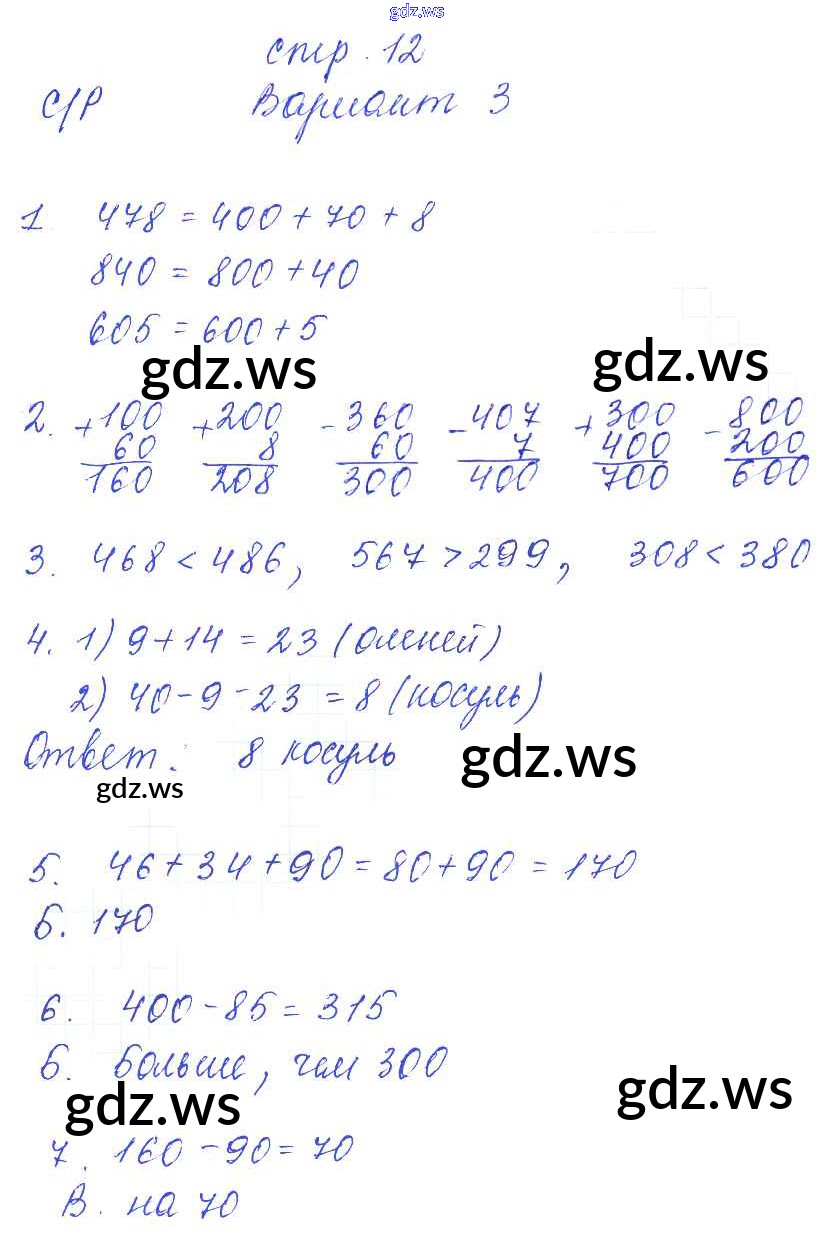 gdz.ws
стр. 12
С/Р Вариант 3
1. 478 = 400 + 70 + 8
840 = 800 + 40
605 = 600 + 5
gdz.ws gdz.ws
2. +100 +200 -360 -407 +300 -800
60 8 60 7 400 200
160 208 300 400 700 600
3. 468 < 486, 567 > 299, 308 < 380
4. 1) 9 + 14 = 23 (оленей)
2) 40 - 9 - 23 = 8 (косуль)
Ответ: 8 косуль gdz.ws
gdz.ws
5. 46 + 34 + 90 = 80 + 90 = 170
Б. 170
6. 400 - 85 = 315
Б. больше, чем 300
gdz.ws gdz.ws
7. 160 - 90 = 70
В. на 70